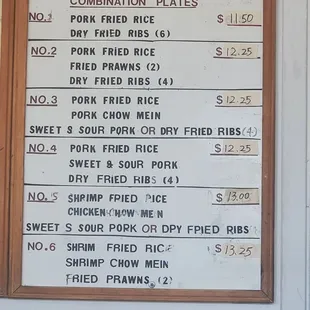 COMBINATION PLATES
NO.1 PORK FRIED RICE $ 11.50
DRY FRIED RIBS (6)
NO.2 PORK FRIED RICE $ 12.25
FRIED PRAWNS (2)
DRY FRIED RIBS (4)
NO.3 PORK FRIED RICE $ 12.25
PORK CHOW MEIN
SWEET & SOUR PORK OR DRY FRIED RIBS (4)
NO.4 PORK FRIED RICE $ 12.25
SWEET & SOUR PORK
DRY FRIED RIBS (4)
NO.5 SHRIMP FRIED RICE $ 13.00
CHICKEN CHOW MEIN
SWEET & SOUR PORK OR DRY FRIED RIBS
NO.6 SHRIM FRIED RICE $ 13.25
SHRIMP CHOW MEIN
FRIED PRAWNS (2)